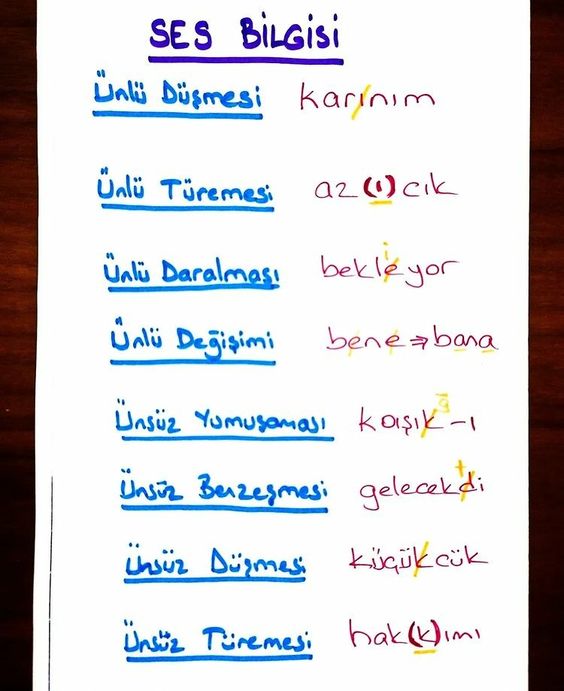 SES BİLGİSİ
Ünlü Düşmesi karınım
Ünlü Türemesi az(ı)cık
Ünlü Daralması bekleyor i
Ünlü Değişimi bene ⇒ bana
Ünsüz Yumuşaması kaşık-ı ğ
Ünsüz Benzeşmesi gelecekdi t
Ünsüz Düşmesi küçükcük
Ünsüz Türemesi hak(k)ımı